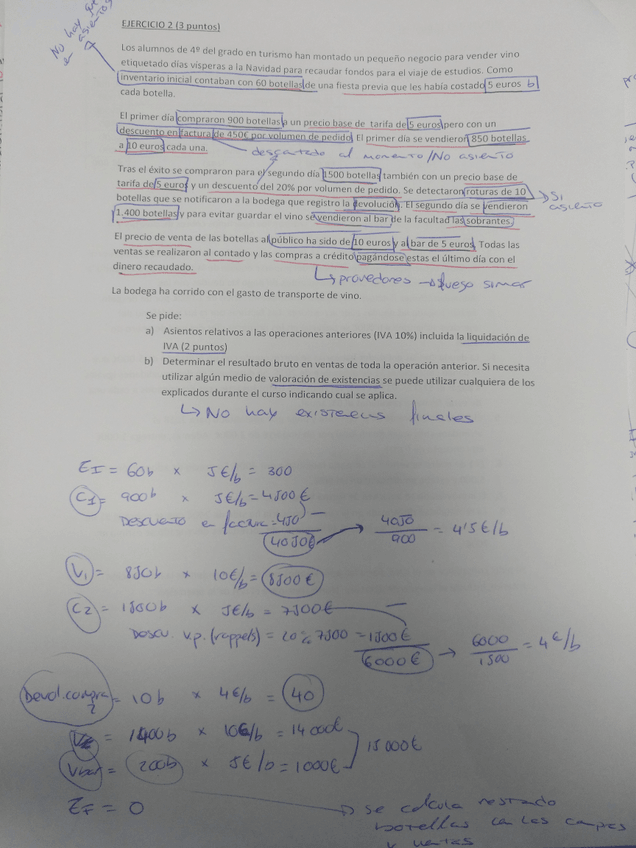 No hay que
en asientos
EJERCICIO 2 (3 puntos)
Los alumnos de 4º del grado en turismo han montado un pequeño negocio para vender vino
etiquetado días vísperas a la Navidad para recaudar fondos para el viaje de estudios. Como
inventario inicial contaban con 60 botellas de una fiesta previa que les había costado 5 euros b
cada botella.
El primer día compraron 900 botellas a un precio base de tarifa de 5 euros pero con un
descuento en factura de 450€ por volumen de pedido. El primer día se vendieron 850 botellas
a 10 euros cada una.
descartado al momento/No asiento
Tras el éxito se compraron para el segundo día 1500 botellas también con un precio base de
tarifa de 5 euros y un descuento del 20% por volumen de pedido. Se detectaron roturas de 10
botellas que se notificaron a la bodega que registro la devolución. El segundo día se vendieron
1.400 botellas y para evitar guardar el vino se vendieron al bar de la facultad las sobrantes.
Si
asiento
El precio de venta de las botellas al público ha sido de 10 euros y al bar de 5 euros. Todas las
ventas se realizaron al contado y las compras a crédito pagándose estas el último día con el
dinero recaudado.
↳ proveedores → luego sumar
La bodega ha corrido con el gasto de transporte de vino.
Se pide:
a) Asientos relativos a las operaciones anteriores (IVA 10%) incluida la liquidación de
IVA (2 puntos)
b) Determinar el resultado bruto en ventas de toda la operación anterior. Si necesita
utilizar algún medio de valoración de existencias se puede utilizar cualquiera de los
explicados durante el curso indicando cual se aplica.
↳ No hay existencias finales
EI = 60b × 5€/b = 300
C1 = 900b × 5€/b = 4500€
Descuento en factura = 450 —
4050€ → 4050/900 = 4'5€/b
V1 = 850b × 10€/b = 8500€
C2 = 1500b × 5€/b = 7500€ —
Descu. v.p. (rappels) = 20% 7500 = 1500€
6000€ → 6000/1500 = 4€/b
Devol. compra 2 = 10b × 4€/b = 40
V2 = 1400b × 10€/b = 14000€
Vbar = 200b × 5€/b = 1000€
15000€
EF = 0
→ se calcula restando
botellas en las compras
y ventas